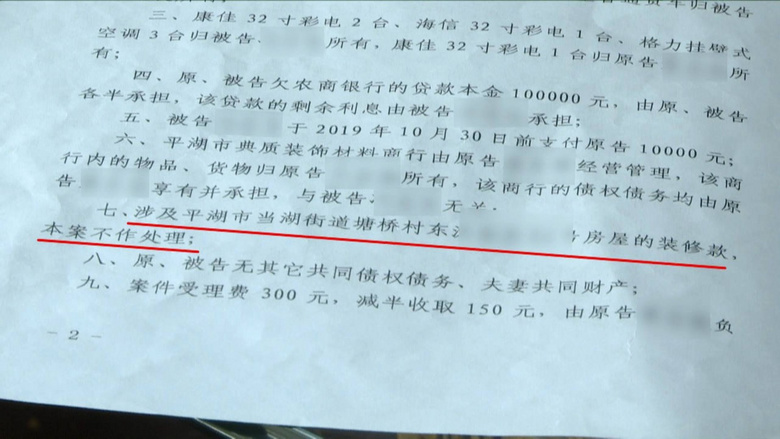 普通货车归被告
三、康佳32寸彩电2台、海信32寸彩电1台、格力挂壁式
空调3台归被告 所有,康佳32寸彩电1台归原告 所
有;
四、原、被告欠农商银行的贷款本金100000元,由原、被告
各半承担,该贷款的剩余利息由被告 承担;
五、被告 于2019年10月30日前支付原告10000元;
六、平湖市典质装饰材料商行由原告 经营管理,该商
行内的物品、货物归原告 所有,该商行的债权债务均由原
告 享有并承担,与被告 无关
七、涉及平湖市当湖街道塘桥村东 房屋的装修款,
本案不作处理;
八、原、被告无其它共同债权债务、夫妻共同财产;
九、案件受理费300元,减半收取150元,由原告 负
- 2 -